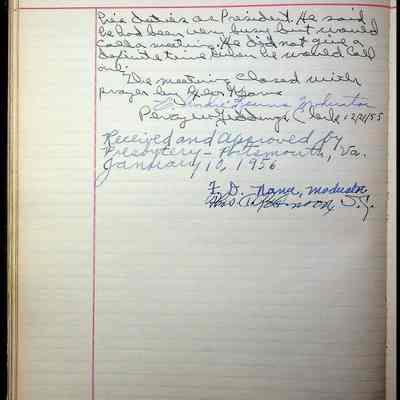 his duties as President. He said
he had been very busy but would
call a meeting. He did not give a
definite time when he would call
one.
The meeting closed with
prayer by
Moderator
Percy W. Giddings, Clerk 12/31/55
Received and Approved by
Presbytery - Portsmouth, Va.
January 10, 1956
F. D. Nance, Moderator
S.C.